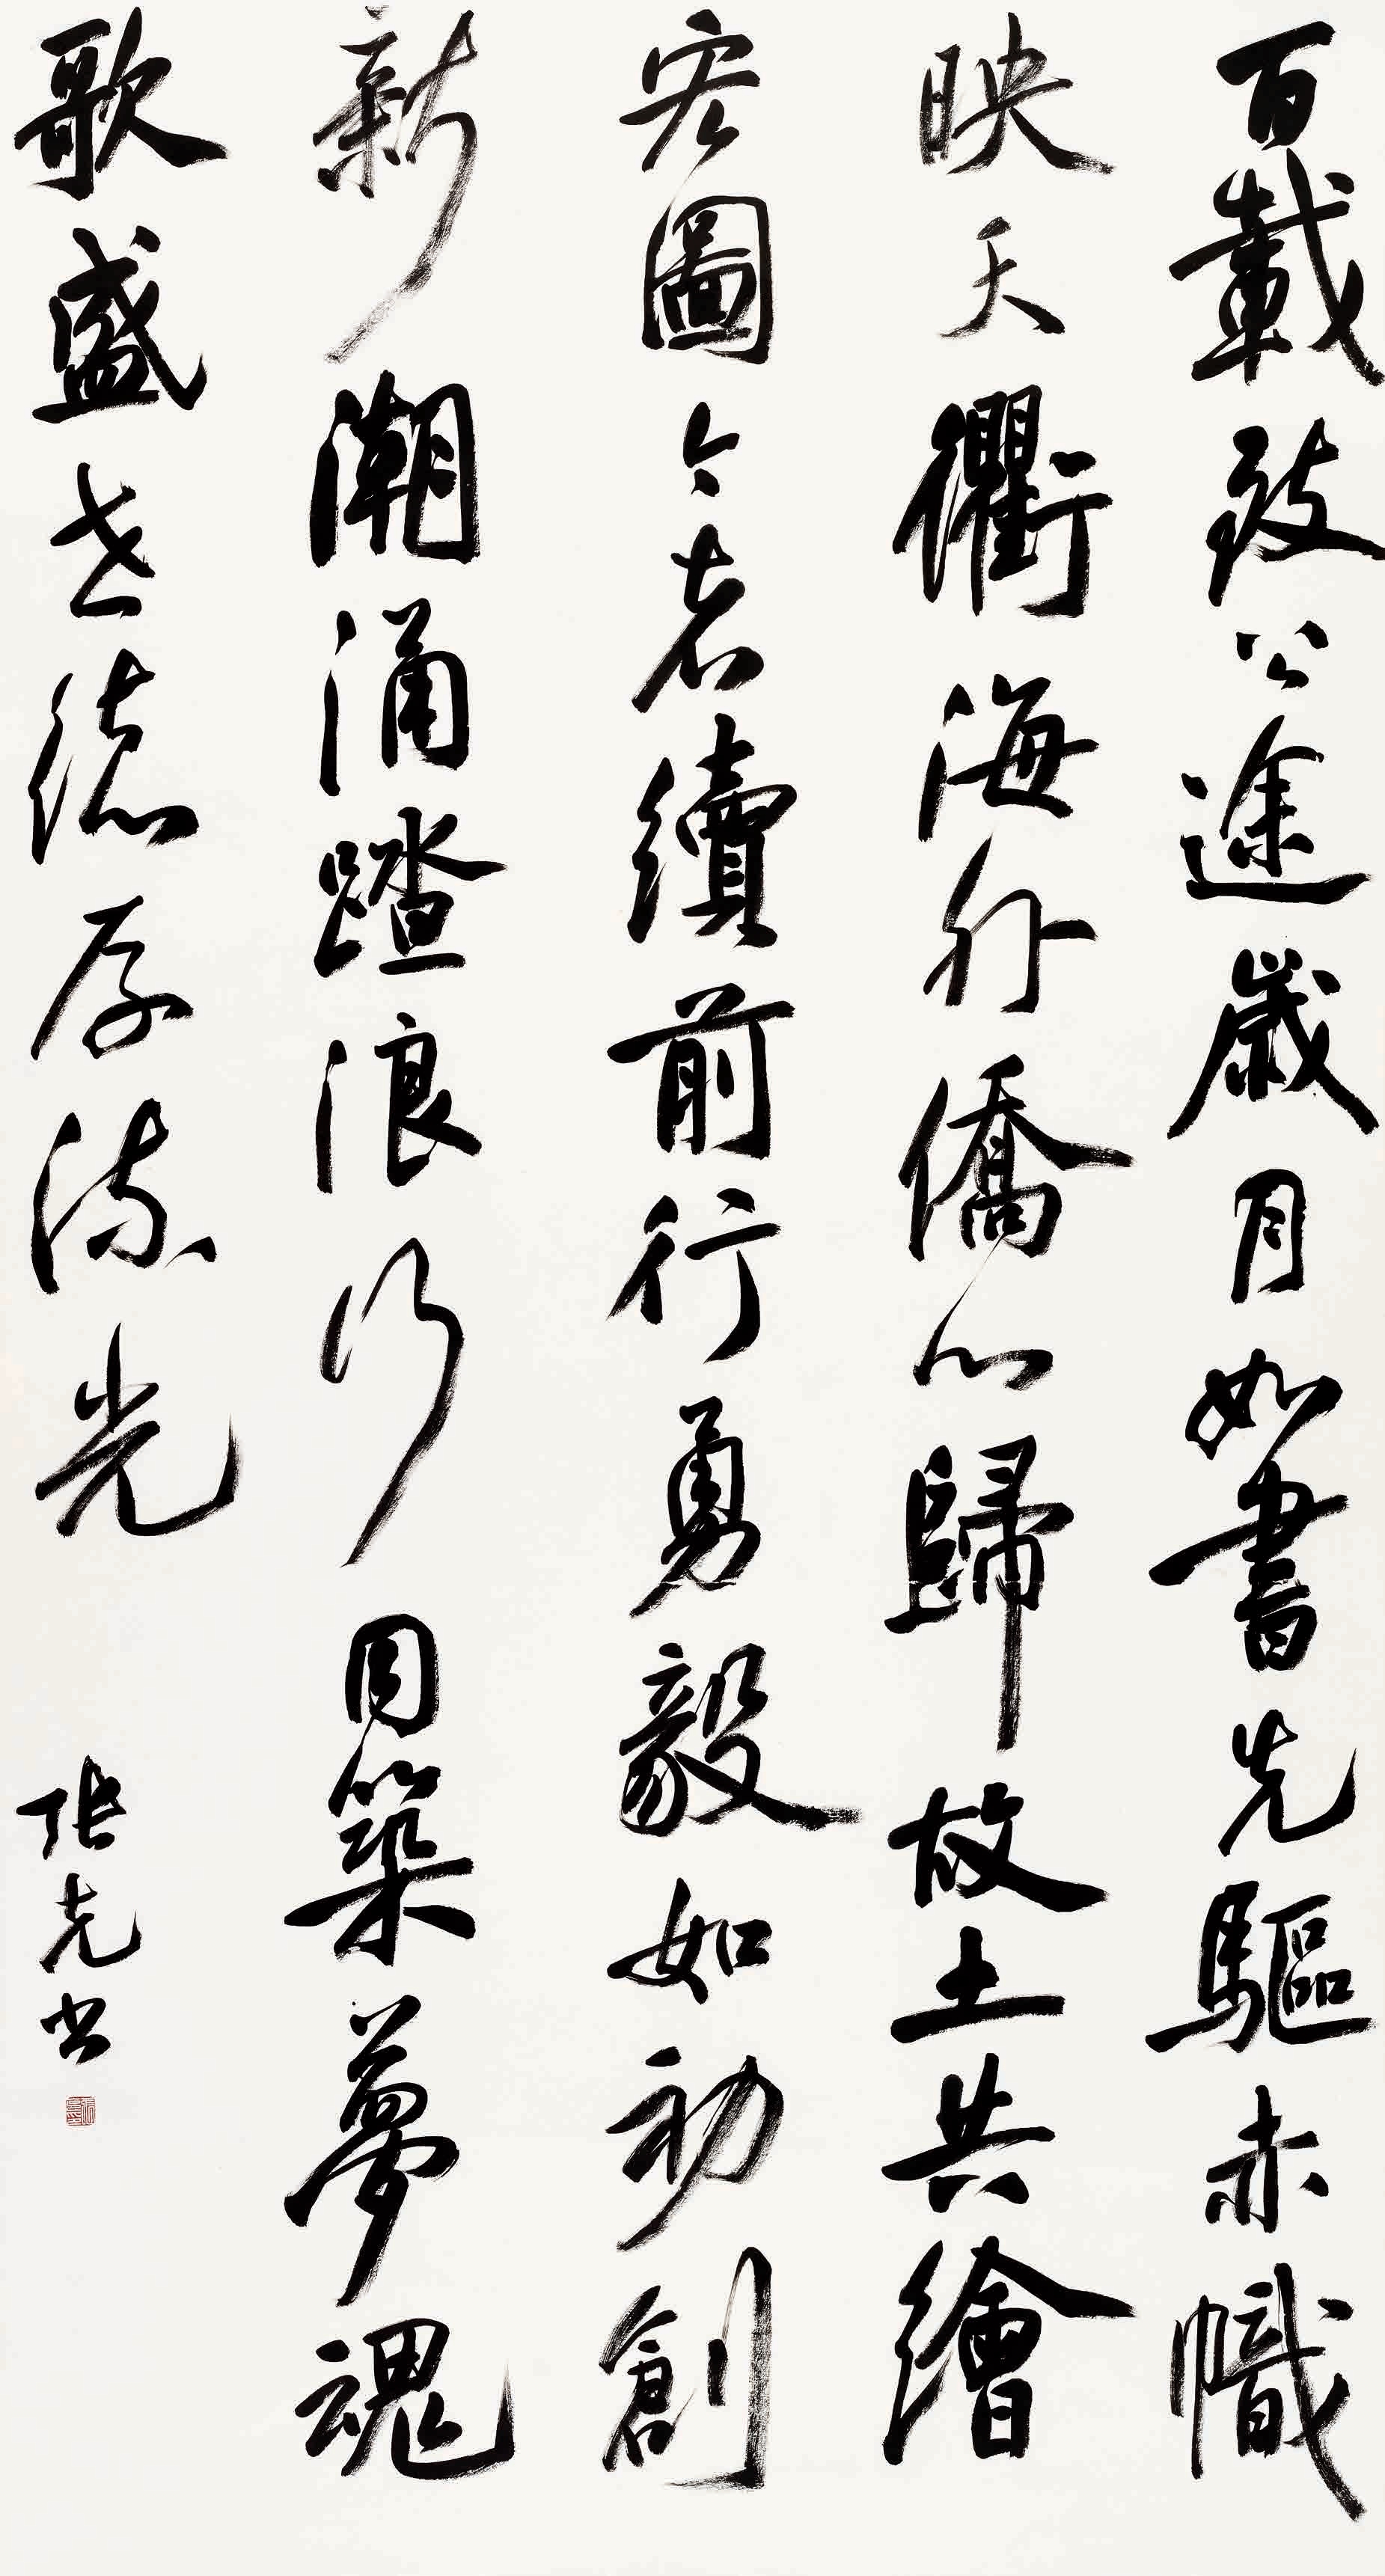 百載致公途歲月如書先驅赤幟
映天衢海外僑心歸故土共繪
宏圖今者續前行勇毅如初創
新潮涌踏浪行同築夢魂
歌盛世德厚流光
张克书